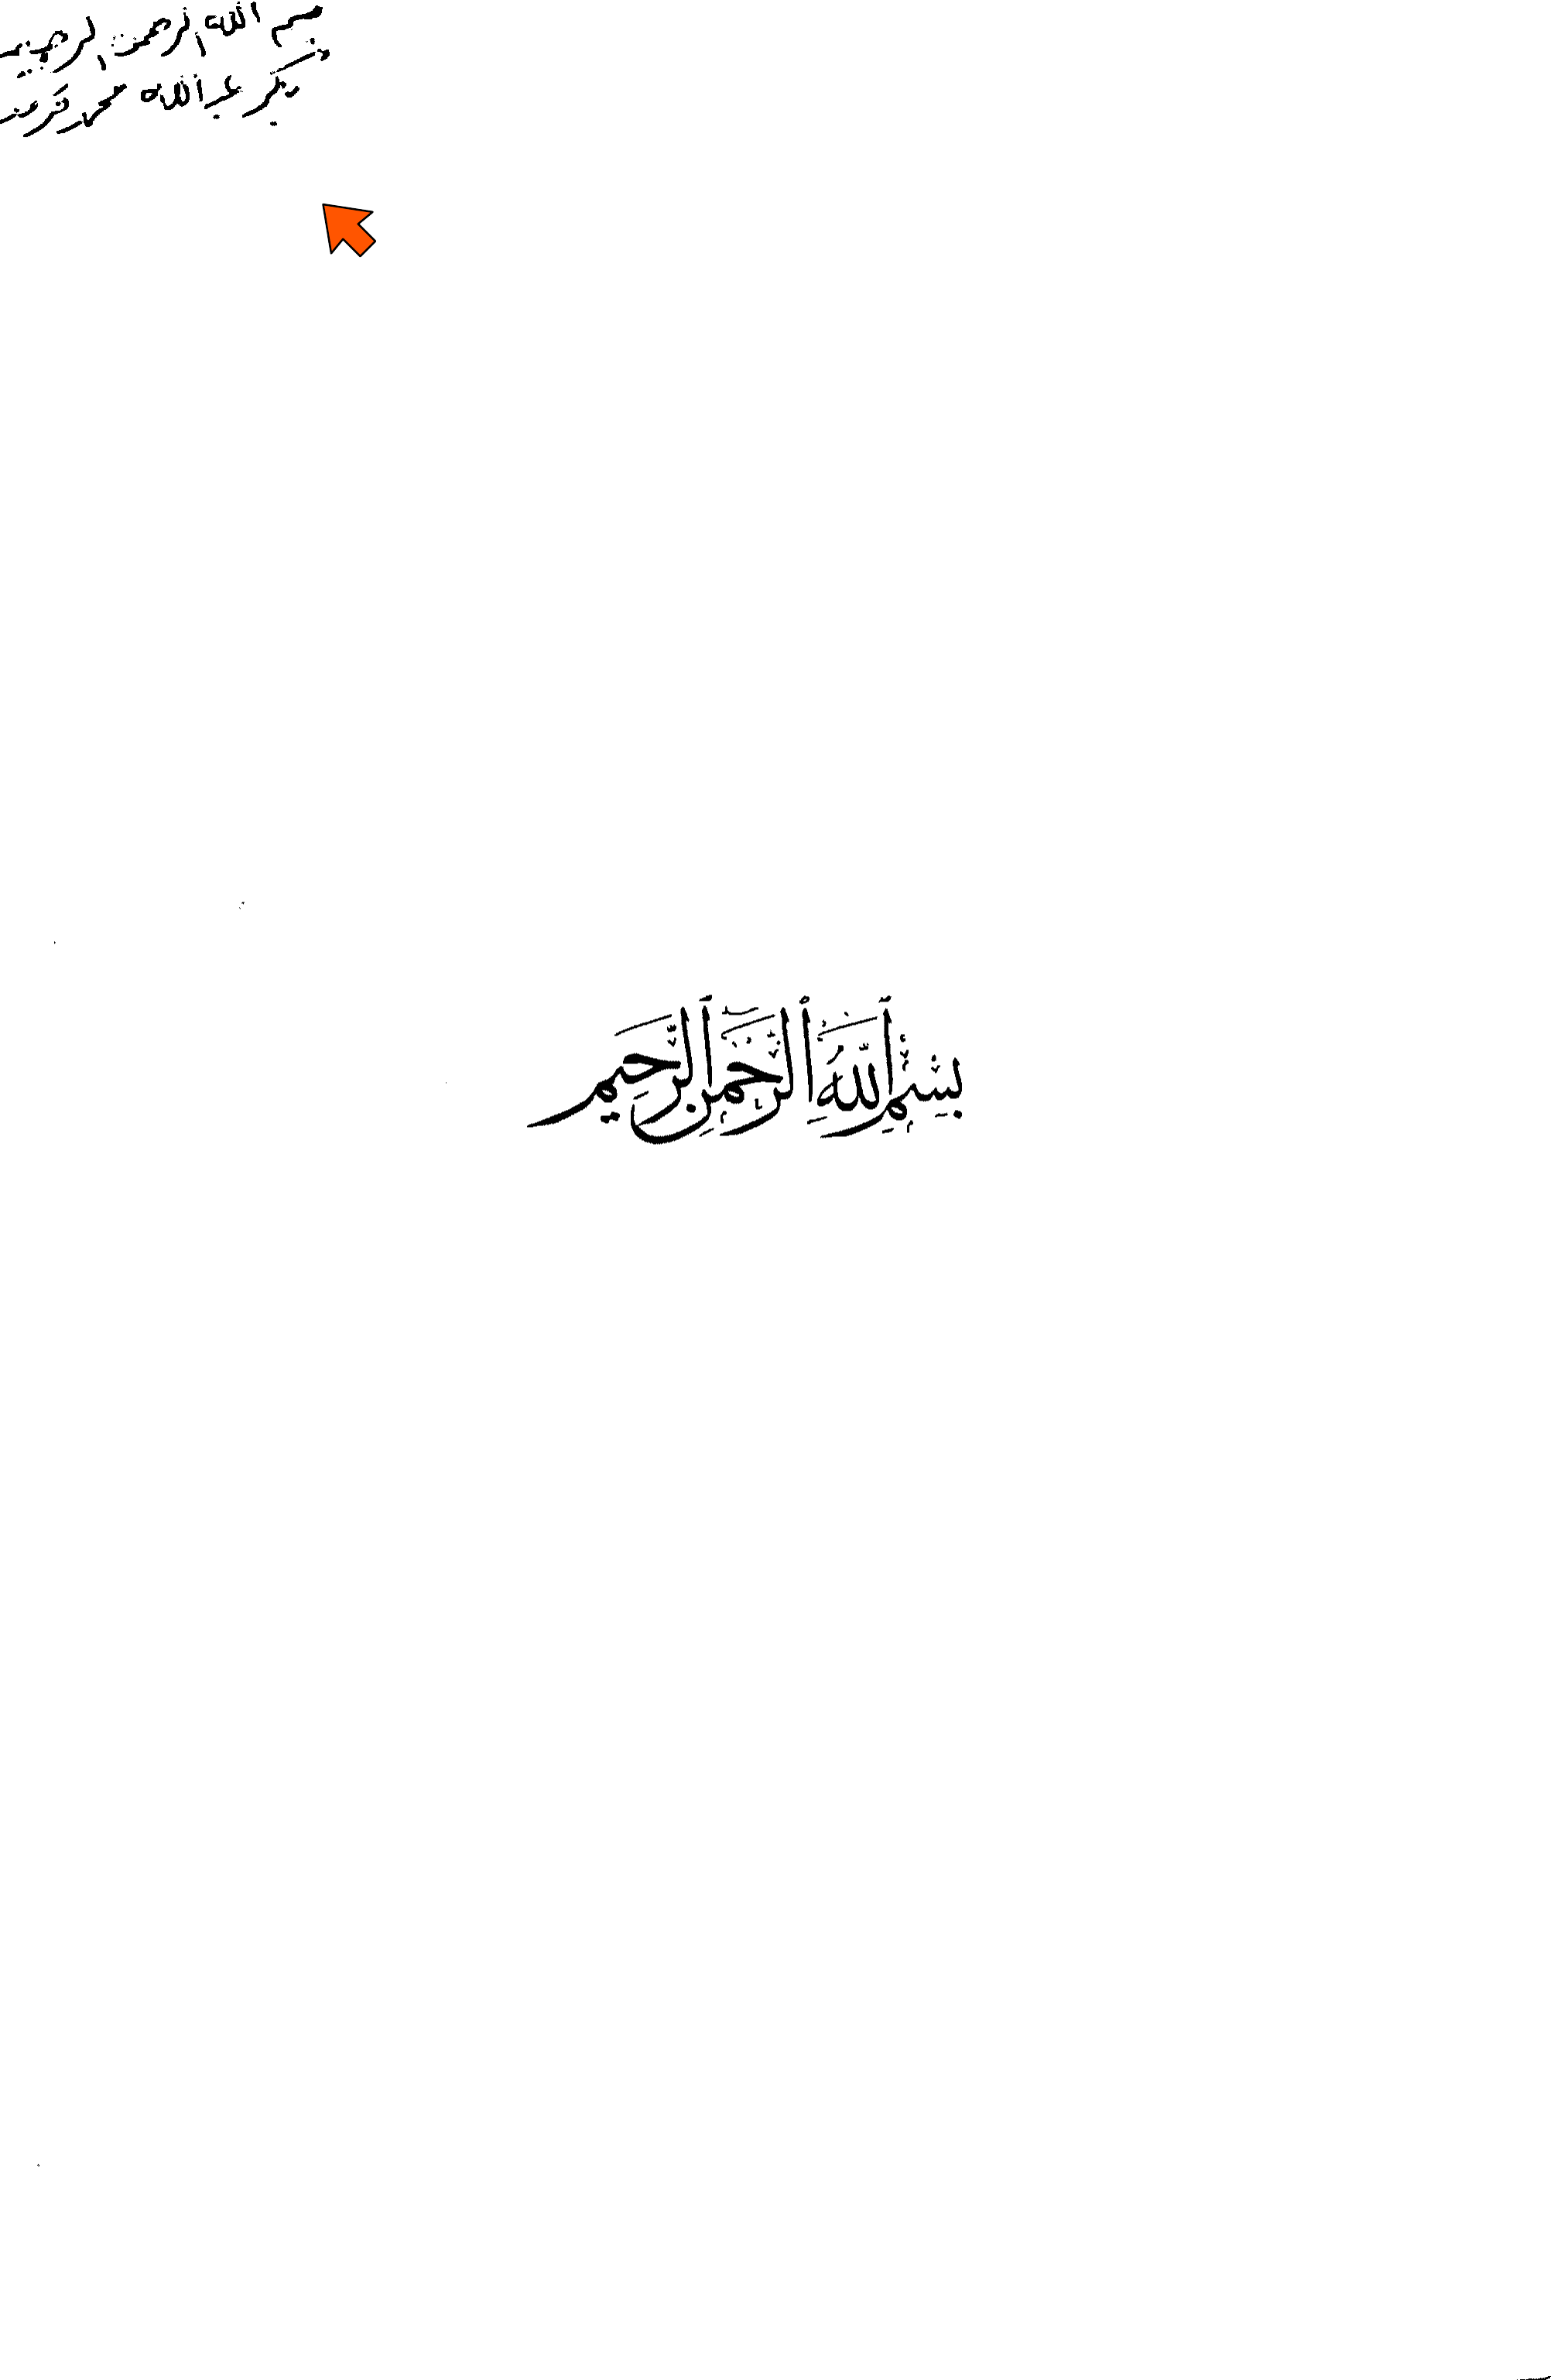 بسم الله الرحمن الرحيم
عبد الله محمد
بِسْمِ اللَّهِ الرَّحْمَنِ الرَّحِيمِ